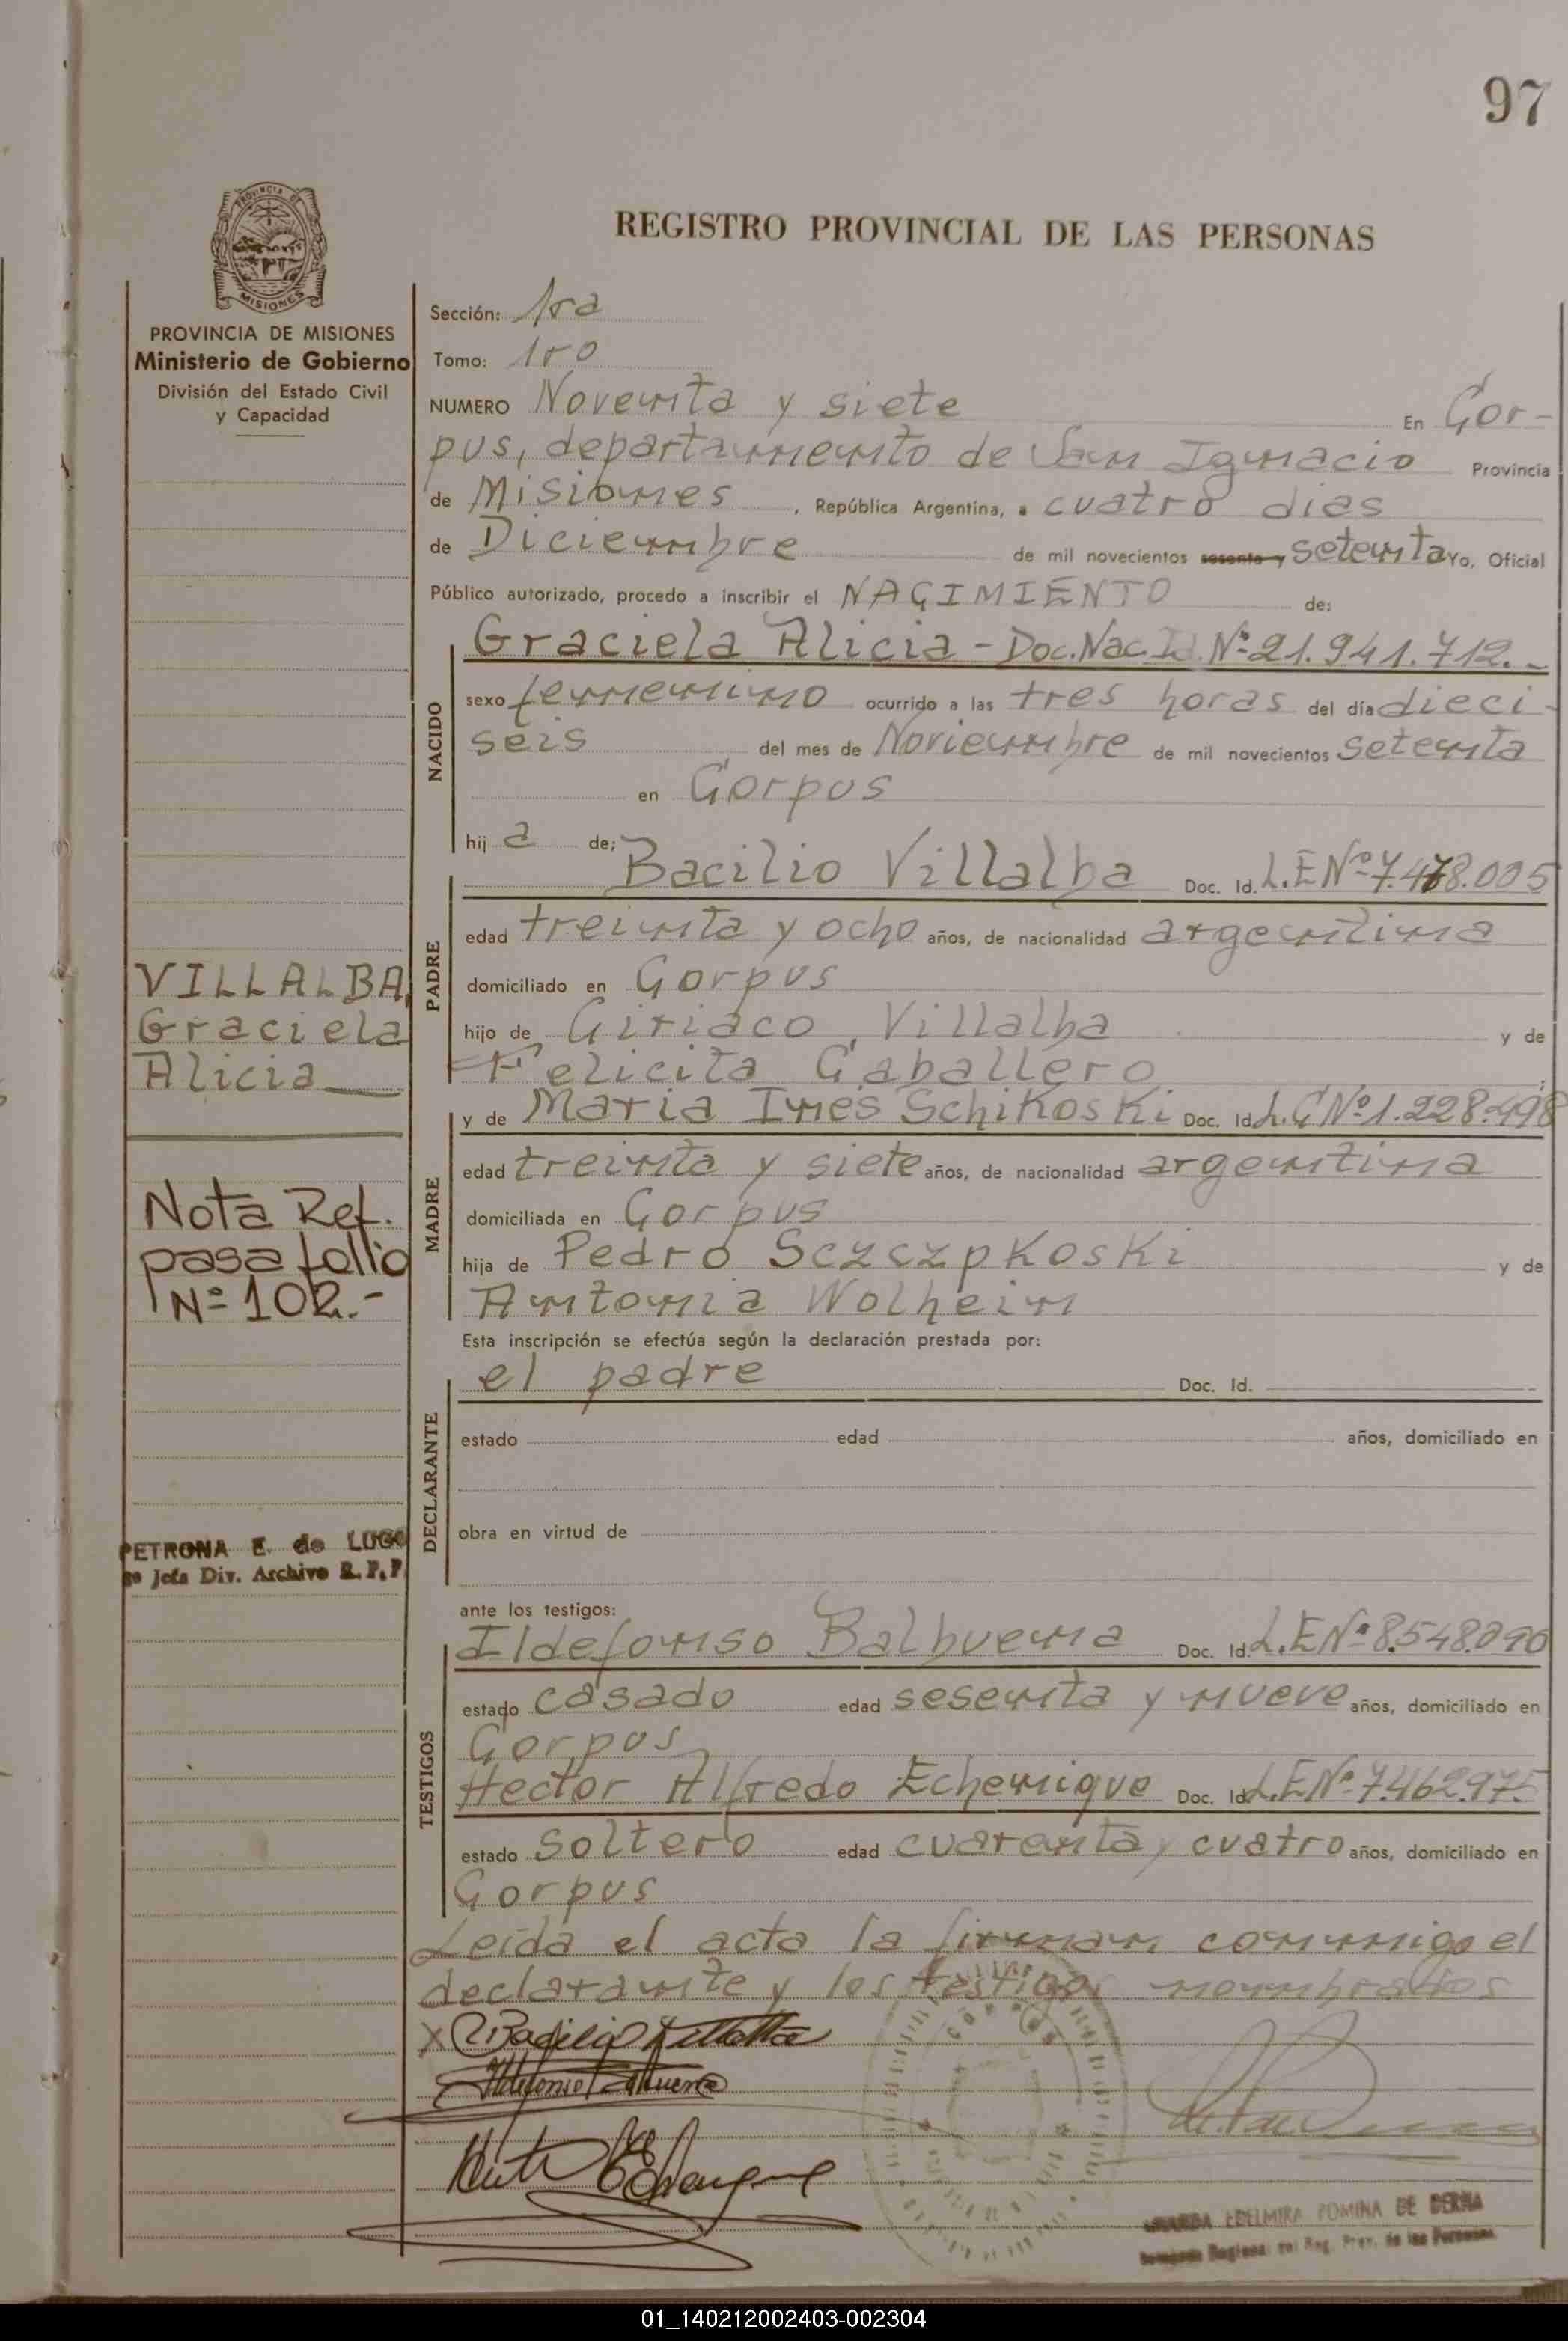 97
PROVINCIA DE
MISIONES
PROVINCIA DE MISIONES
Ministerio de Gobierno
División del Estado Civil
y Capacidad
REGISTRO PROVINCIAL DE LAS PERSONAS
Sección: 1ra
Tomo: 1ro
NUMERO Noventa y siete En Cor-
pus, departamento de San Ignacio Provincia
de Misiones, República Argentina, a cuatro dias
de Diciembre de mil novecientos sesenta y setenta Yo, Oficial
Público autorizado, procedo a inscribir el NACIMIENTO de:
NACIDO
Graciela Alicia - Doc. Nac. Id. Nº 21.941.712.-
sexo femenino ocurrido a las tres horas del día dieci-
seis del mes de Noviembre de mil novecientos setenta
en Corpus
hij a de;
PADRE
Bacilio Villalba Doc. Id. L.E Nº 7.478.005
edad treinta y ocho años, de nacionalidad argentina
domiciliado en Corpus
hijo de Ciriaco Villalba y de
Felicita Caballero
MADRE
y de Maria Ines Schikoski Doc. Id. L.C Nº 1.228.498
edad treinta y siete años, de nacionalidad argentina
domiciliada en Corpus
hija de Pedro Sczczpkoski y de
Antonia Wolhein
VILLALBA,
Graciela
Alicia
Nota Ref.
pasa follio
Nº 102.-
PETRONA E. de LUGO
Jefa Div. Archivo R. P. P.
Esta inscripción se efectúa según la declaración prestada por:
DECLARANTE
el padre Doc. Id.
estado edad años, domiciliado en
obra en virtud de
ante los testigos:
TESTIGOS
Ildefonso Balbuena Doc. Id. L.E Nº 8.548.090
estado casado edad sesenta y nueve años, domiciliado en
Corpus
Hector Alfredo Echenique Doc. Id. L.E Nº 7.462.975
estado soltero edad cuarenta y cuatro años, domiciliado en
Corpus
Leída el acta la firman conmigo el
declarante y los testigos nombrados
X Bacilio Villalba
Ildefonso Balbuena
EDELMIRA ROMINA DE
Reg. Prov. de las Personas
01_140212002403-002304